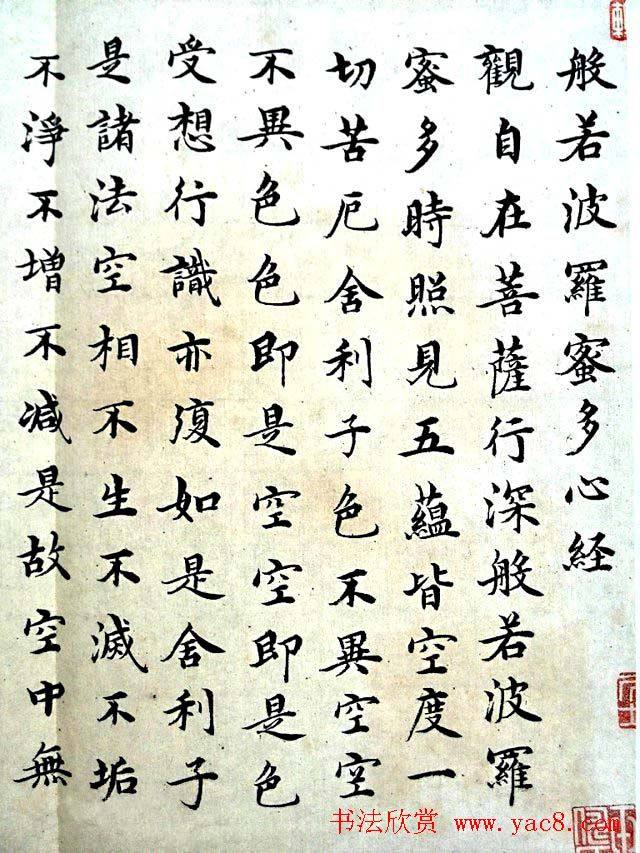 般若波羅蜜多心経
觀自在菩薩行深般若波羅
蜜多時照見五蘊皆空度一
切苦厄舍利子色不異空空
不異色色即是空空即是色
受想行識亦復如是舍利子
是諸法空相不生不滅不垢
不淨不増不減是故空中無
书法欣赏 www.yac8.com